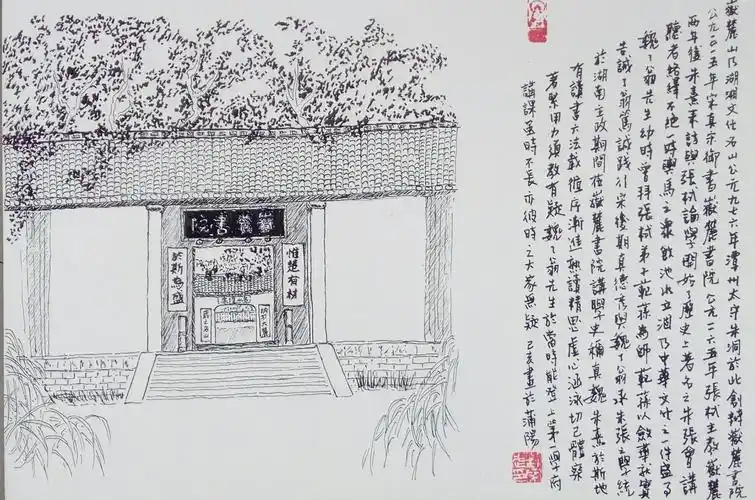 嶽麓山乃湖湘文化名山公元九七六年潭州太守朱洞於此創辦嶽麓書院
公元一〇一五年宋真宗御書嶽麓書院公元一一六五年張栻主教嶽麓
兩年後朱熹來訪與張栻論學開始了歷史上著名之朱張會講
聽者絡繹不絕一時輿馬之衆飲池水立涸乃中華文化之一件盛事
魏了翁先生幼時曾拜張栻弟子範蓀為師範蓀以斂華就實
告誡了翁篤誠踐行宋後期真德秀與魏了翁承朱張之學統
於湖南主政期間在嶽麓書院講學史稱真魏朱熹於斯地
有讀書六法載循序漸進熟讀精思虛心涵泳切己體察
著緊用力須教有疑魏了翁先生於當時能登上第一學府
講課虽時不長亦彼時之大家無疑己亥畫於蒲陽
嶽麓書院
惟楚有材
於斯為盛